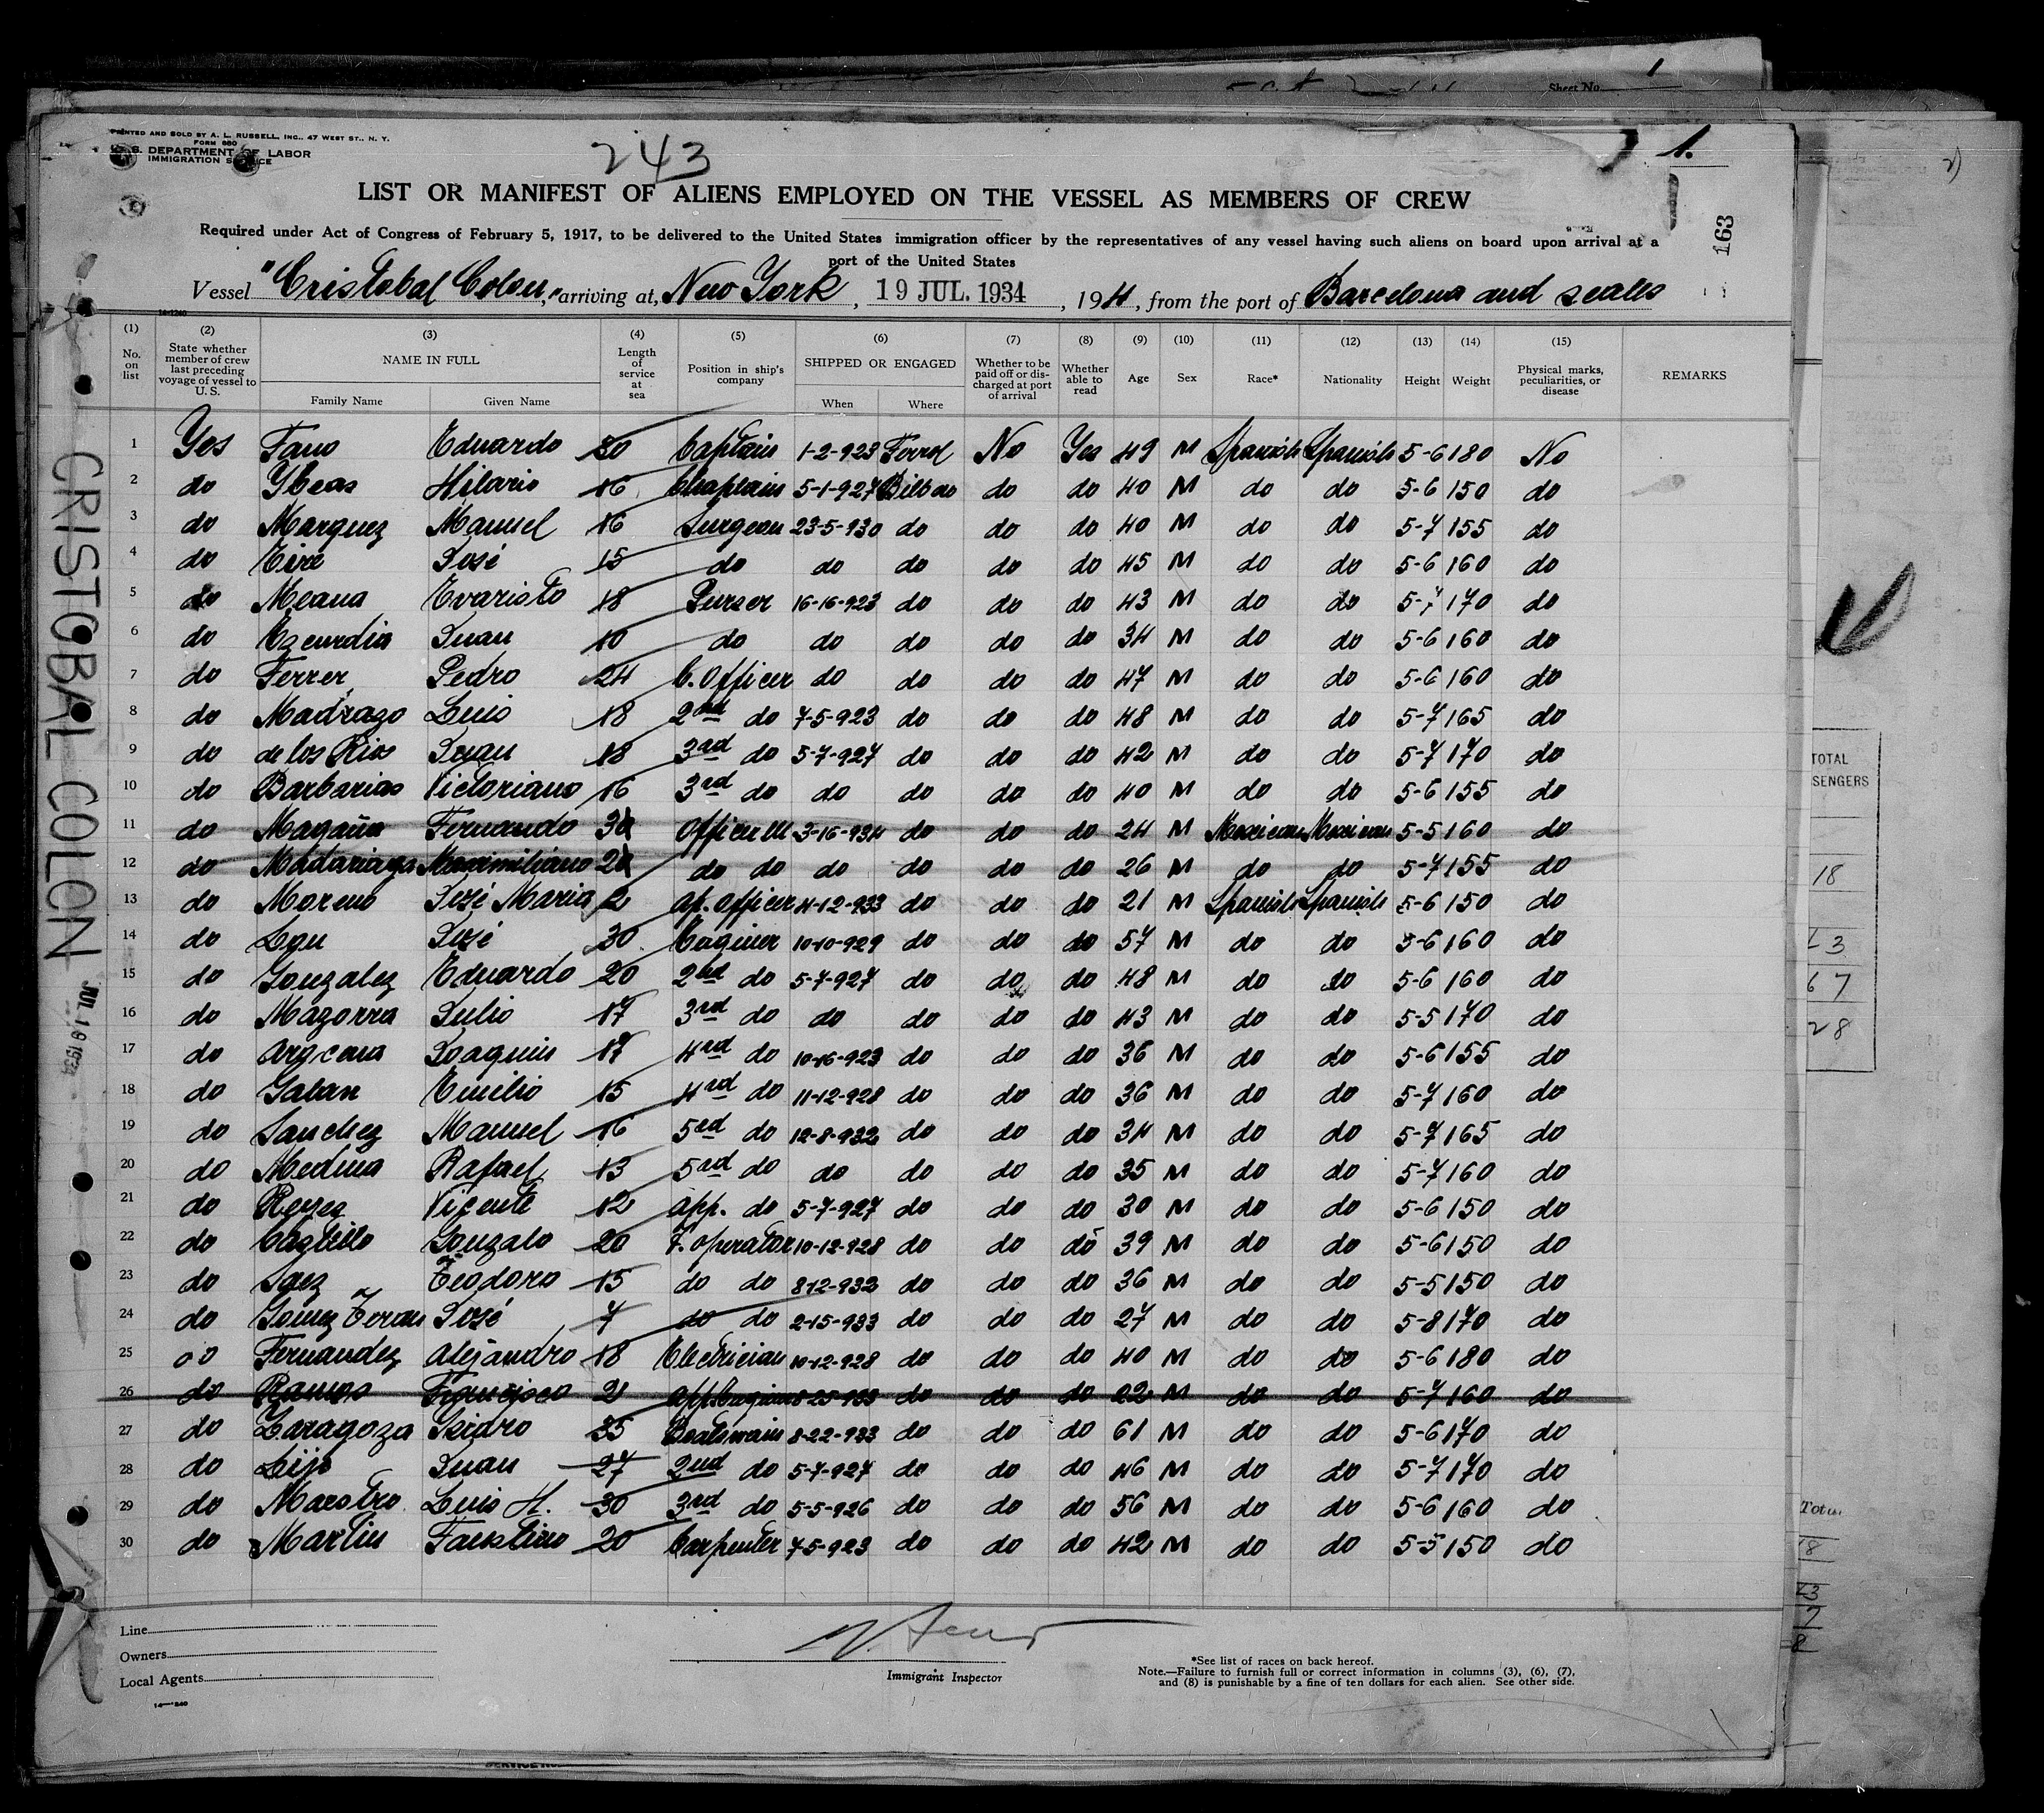 Sheet No. 1
PRINTED AND SOLD BY A. L. RUSSELL, INC., 47 WEST ST., N. Y.
FORM 680
U. S. DEPARTMENT OF LABOR
IMMIGRATION SERVICE
243
1.
163
LIST OR MANIFEST OF ALIENS EMPLOYED ON THE VESSEL AS MEMBERS OF CREW
Required under Act of Congress of February 5, 1917, to be delivered to the United States immigration officer by the representatives of any vessel having such aliens on board upon arrival at a
port of the United States
Vessel "Cristobal Colon," arriving at, New York, 19 JUL. 1934, 194, from the port of Barcelona and scales
(1) (2) (3) (4) (5) (6) (7) (8) (9) (10) (11) (12) (13) (14) (15)
No. on list State whether member of crew last preceding voyage of vessel to U. S. NAME IN FULL Family Name Given Name Length of service at sea Position in ship's company SHIPPED OR ENGAGED When Where Whether to be paid off or discharged at port of arrival Whether able to read Age Sex Race* Nationality Height Weight Physical marks, peculiarities, or disease REMARKS
1 Yes Fano Eduardo 30 Captain 1-2-923 Ferrol No Yes 49 M Spanish Spanish 5-6 180 No
2 do Ybeas Hilario 16 Chaplain 5-1-927 Bilbao do do 40 M do do 5-6 150 do
3 do Marquez Manuel 16 Surgeon 23-5-930 do do do 40 M do do 5-7 155 do
4 do José 15 do do do do do 45 M do do 5-6 160 do
5 do Meana Evaristo 18 Purser 16-16-923 do do do 43 M do do 5-7 170 do
6 do Ezcurdia Juan 10 do do do do do 34 M do do 5-6 160 do
7 do Ferrer Pedro 24 C. Officer do do do do 47 M do do 5-6 160 do
8 do Madrazo Luis 18 2nd do 7-5-923 do do do 48 M do do 5-7 165 do
9 do de los Rios Juan 18 3rd do 5-7-927 do do do 42 M do do 5-7 170 do
10 do Barbarias Victoriano 16 3rd do do do do do 40 M do do 5-6 155 do
11 do Magaña Fernando Officer 3-16-934 do do do 24 M Mexican Mexican 5-5 160 do
12 do Madariaga Maximiliano do do do do do do 26 M do do 5-7 155 do
13 do Moreno José Maria 2 ap. officer 4-12-933 do do do 21 M Spanish Spanish 5-6 150 do
14 do José 30 Enginer 10-10-929 do do do 57 M do do 5-6 160 do
15 do Gonzalez Eduardo 20 2nd do 5-7-927 do do do 48 M do do 5-6 160 do
16 do Mazorra Julio 17 3rd do do do do do 43 M do do 5-5 170 do
17 do Joaquin 17 4rd do 10-16-923 do do do 36 M do do 5-6 155 do
18 do Galvan Emilio 15 4rd do 11-12-928 do do do 36 M do do 5-7 160 do
19 do Sanchez Manuel 16 5rd do 12-8-932 do do do 34 M do do 5-7 165 do
20 do Medina Rafael 13 5rd do do do do do 35 M do do 5-7 160 do
21 do Reyes Vicente 12 app. do 5-7-927 do do do 30 M do do 5-6 150 do
22 do Gonzalo 20 T. operator 10-12-928 do do do 39 M do do 5-6 150 do
23 do Saez Teodoro 15 do do 8-12-932 do do do 36 M do do 5-5 150 do
24 do Gomez Teran José 7 do do 2-15-933 do do do 27 M do do 5-8 170 do
25 do Fernandez Alejandro 18 Electrician 10-12-928 do do do 40 M do do 5-6 180 do
26 do Ramos Francisco 2 8-25-933 do do do 22 M do do 5-7 160 do
27 do Zaragoza Isidro 35 Boatswain 8-22-933 do do do 61 M do do 5-6 170 do
28 do Lijo Juan 27 2nd do 5-7-927 do do do 46 M do do 5-7 170 do
29 do Maestro Luis H. 30 3rd do 5-5-926 do do do 56 M do do 5-6 160 do
30 do Martin Faustino 20 Carpenter 7-5-923 do do do 42 M do do 5-5 150 do
Line
Owners
Local Agents
14-1240
Immigrant Inspector
*See list of races on back hereof.
Note.—Failure to furnish full or correct information in columns (3), (6), (7),
and (8) is punishable by a fine of ten dollars for each alien. See other side.
CRISTOBAL COLON
JUL 19 1934
TOTAL
SENGERS
18
67
28